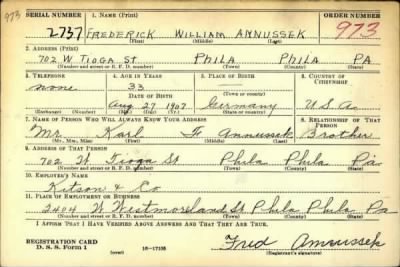 973
SERIAL NUMBER 1. NAME (Print) ORDER NUMBER
2737 FREDERICK WILLIAM ANNUSSEK 973
(First) (Middle) (Last)
2. ADDRESS (Print)
702 W TIOGA St PHILA PHILA PA
(Number and street or R. F. D. number) (Town) (County) (State)
3. TELEPHONE 4. AGE IN YEARS 5. PLACE OF BIRTH 6. COUNTRY OF CITIZENSHIP
none 33
DATE OF BIRTH (Town or county)
Aug 27 1907 Germany U.S.A.
(Exchange) (Number) (Mo.) (Day) (Yr.) (State or country)
7. NAME OF PERSON WHO WILL ALWAYS KNOW YOUR ADDRESS 8. RELATIONSHIP OF THAT PERSON
Mr. Karl Annussek Brother
(Mr., Mrs., Miss) (First) (Middle) (Last)
9. ADDRESS OF THAT PERSON
702 W Tioga St Phila Phila Pa
(Number and street or R. F. D. number) (Town) (County) (State)
10. EMPLOYER'S NAME
Kitson & Co
11. PLACE OF EMPLOYMENT OR BUSINESS
2404 W Westmoreland St Phila Phila Pa
(Number and street or R. F. D. number) (Town) (County) (State)
I AFFIRM THAT I HAVE VERIFIED ABOVE ANSWERS AND THAT THEY ARE TRUE.
REGISTRATION CARD
D. S. S. Form 1 16—17105 Fred Annussek
(Registrant's signature)